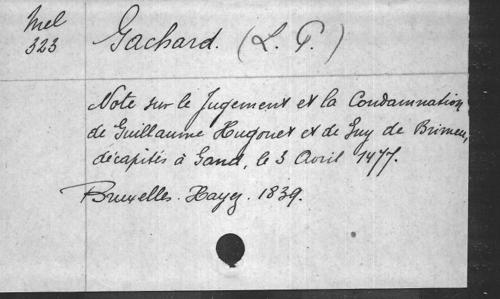 Mel
323
Gachard. (L. P.)
Note sur le Jugement et la Condamnation
de Guillaume Hugonet et de Guy de Brimeu,
décapités à Gand, le 3 Avril 1477.
Bruxelles. Hayez. 1839.